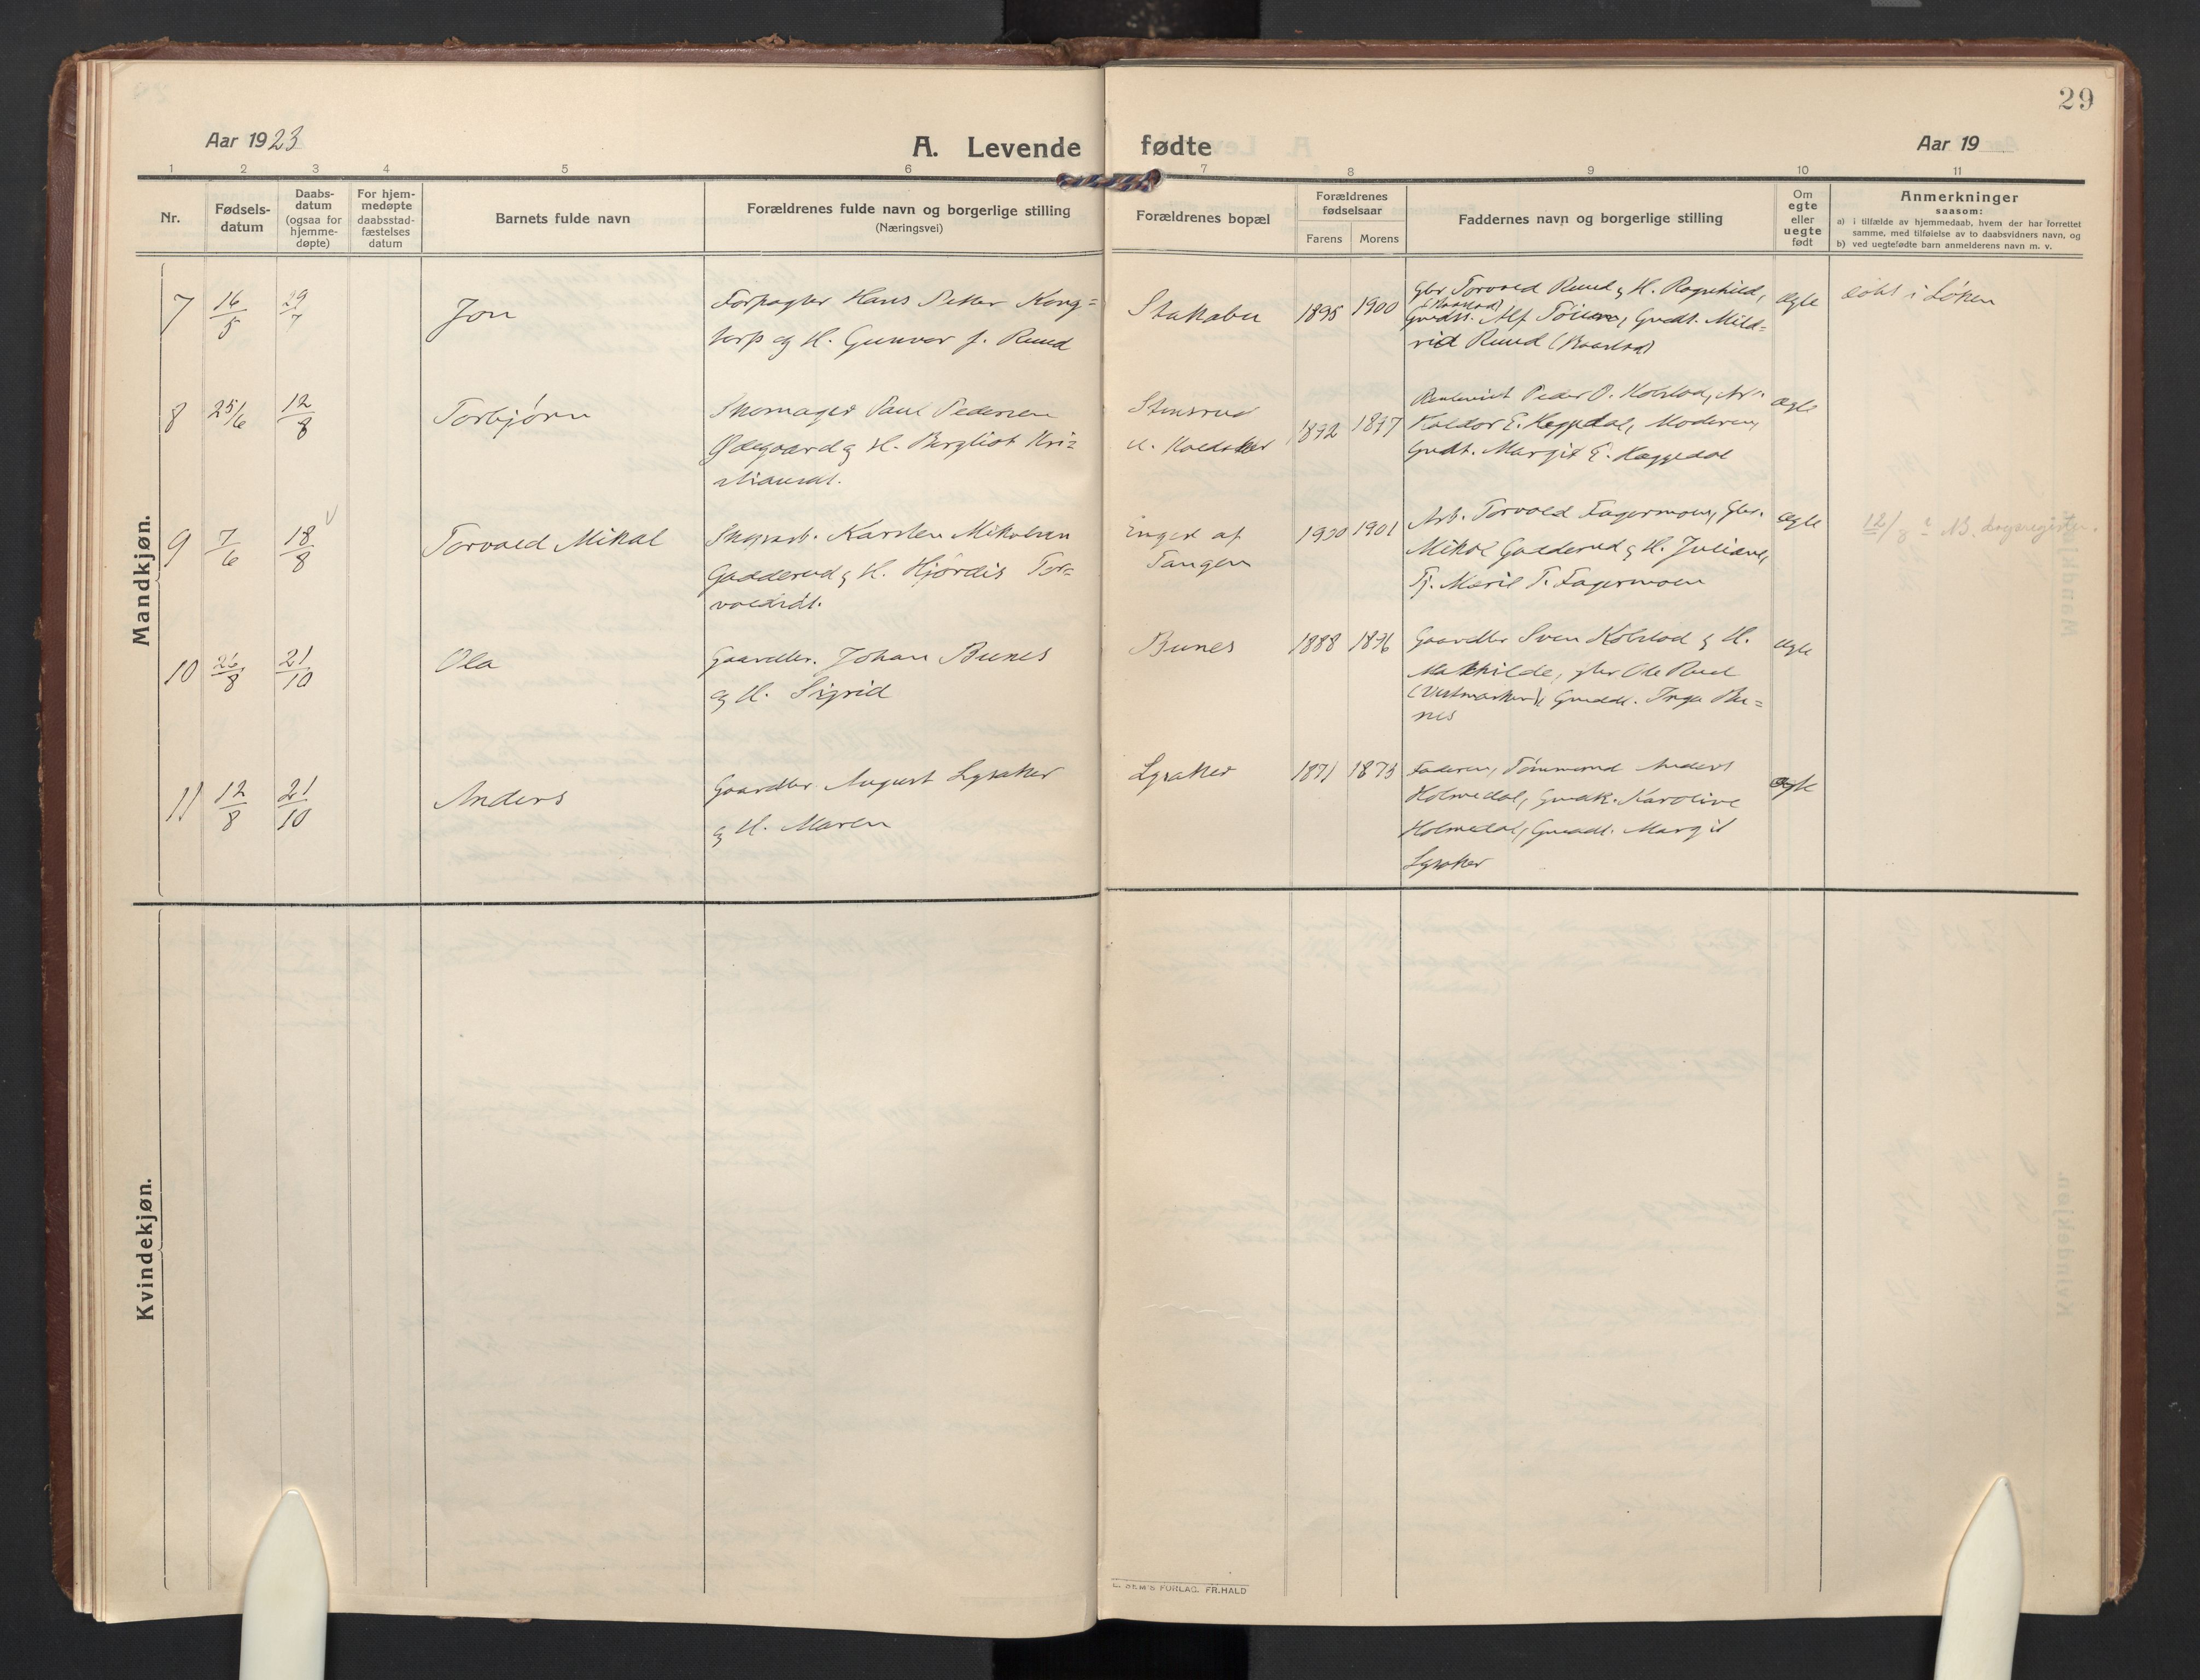 29
Aar 1923
A. Levende fødte
Aar 19
1 2 3 4 5 6 7 8 9 10 11
Nr.
Fødsels-
datum
Daabs-
datum
(ogsaa for
hjemme-
døpte)
For hjem-
medøpte
daabsstad-
fæstelses
datum
Barnets fulde navn
Forældrenes fulde navn og borgerlige stilling
(Næringsvei)
Forældrenes bopæl
Forældrenes
fødselsaar
Farens Morens
Faddernes navn og borgerlige stilling
Om
egte
eller
uegte
født
Anmerkninger
saasom:
a) i tilfælde av hjemmedaab, hvem der har forrettet
samme, med tilføielse av to daabsvidners navn, og
b) ved uegtefødte barn anmelderens navn m. v.
Mandkjøn.
7 16/5 29/7 Jon
Forpagter Hans Petter Kong=
torp og H. Gunvor f. Ruud
Stakabu 1895 1900
Gbr Torvald Ruud & H. Ragnhild,
(Baastad)
Gmdss. Alf Töien, Gmdt. Mild=
rid Ruud (Baastad)
Ægte
døbt i Löken
8 25/6 12/8 Torbjørn
Skomager Paul Pedersen
Ødegaard & H. Bergliot Kri=
stiansdt.
Stensrud
1892 1897
Peder O. Kolstad,
Kaldor E. Haggedal, Moderen,
Gmdt. Margit E. Haggedal
Ægte
9 7/6 18/8 Torvald Mikal
Skogsarb. Karsten Mikalsen
Gadderud & H. Hjördis Tor=
valdsdt.
Tangen
1900 1901
Arb. Torvald Fagermoen, Gbr.
Mikal Gadderud & H. Juliane,
Pj. Marit T. Fagermoen
Ægte
12/8
10 26/8 21/10 Ola
Gaardbr. Johan Bunes
og H. Sigrid
Bunes 1888 1896
Gaardbr Sven Kolstad & H.
Mathilde, gbr Ole Rud
(Vestmarken), Gmddt. Inga Bu=
nes
Ægte
11 12/8 21/10 Anders
Gaardbr. August Lysaker
& H. Maren
Lysaker 1871 1873
Faderen, Tømmermd Anders
Holmedal, Gmdk. Karoline
Holmedal, Gmddt. Margit
Lysaker
Ægte
Kvindekjøn.
E. SEM'S FORLAG. FR.HALD